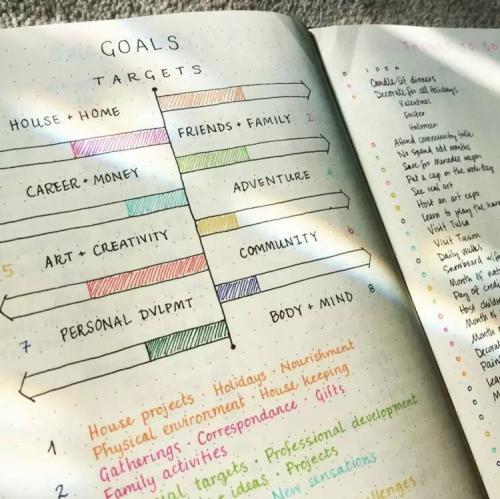 GOALS
TARGETS
HOUSE + HOME
FRIENDS + FAMILY 2
CAREER + MONEY
ADVENTURE 4
5 ART + CREATIVITY
COMMUNITY 6
7 PERSONAL DVLPMT
BODY + MIND 8
1 House projects · Holidays · Nourishment
Physical environment · House keeping
2 Gatherings · Correspondance · Gifts
Family activities
targets · Professional development
ideas · Projects
New sensations
THINGS TO DO
IDEA
Candle-lit dinners
Decorate for all holidays
Valentines
Easter
Halloween
Attend community talk
No spend odd months
Save for Mercedes wagon
Put a cap on the
See real art
Host an art expo
Learn to play the
Visit Tulsa
Visit Tucson
Daily walks
Snowboard
Month of
Pay of credit
Host
Month of
Month
Decorate